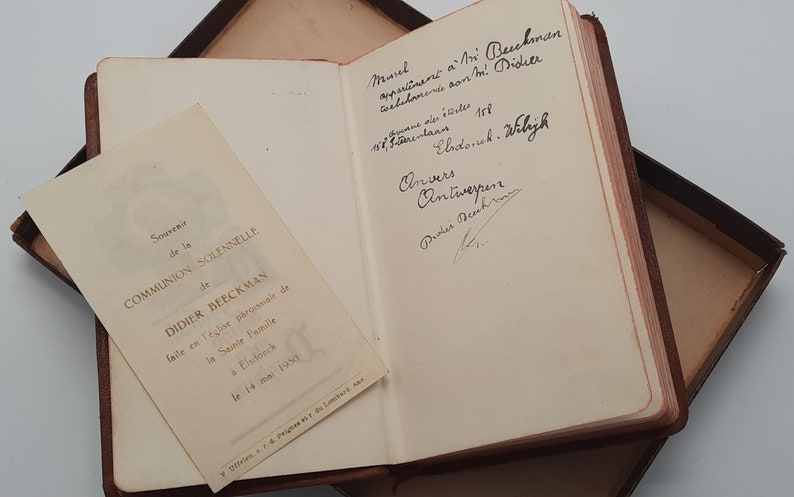 Souvenir
de la
COMMUNION SOLENNELLE
de
DIDIER BEECKMAN
faite en l'église paroissiale de
la Sainte Famille
à Elsdonck
le 14 mai 1950
V. Uffelen, c. r. d. Peignes et r. du Lombard, Anv.
Missel
appartenant à Mr Beeckman
toebehoorende aan Mr Didier
avenue des étoiles
158, Sterrenlaan 158
Elsdonck - Wilrijk
Anvers
Antwerpen
Didier Beeckman